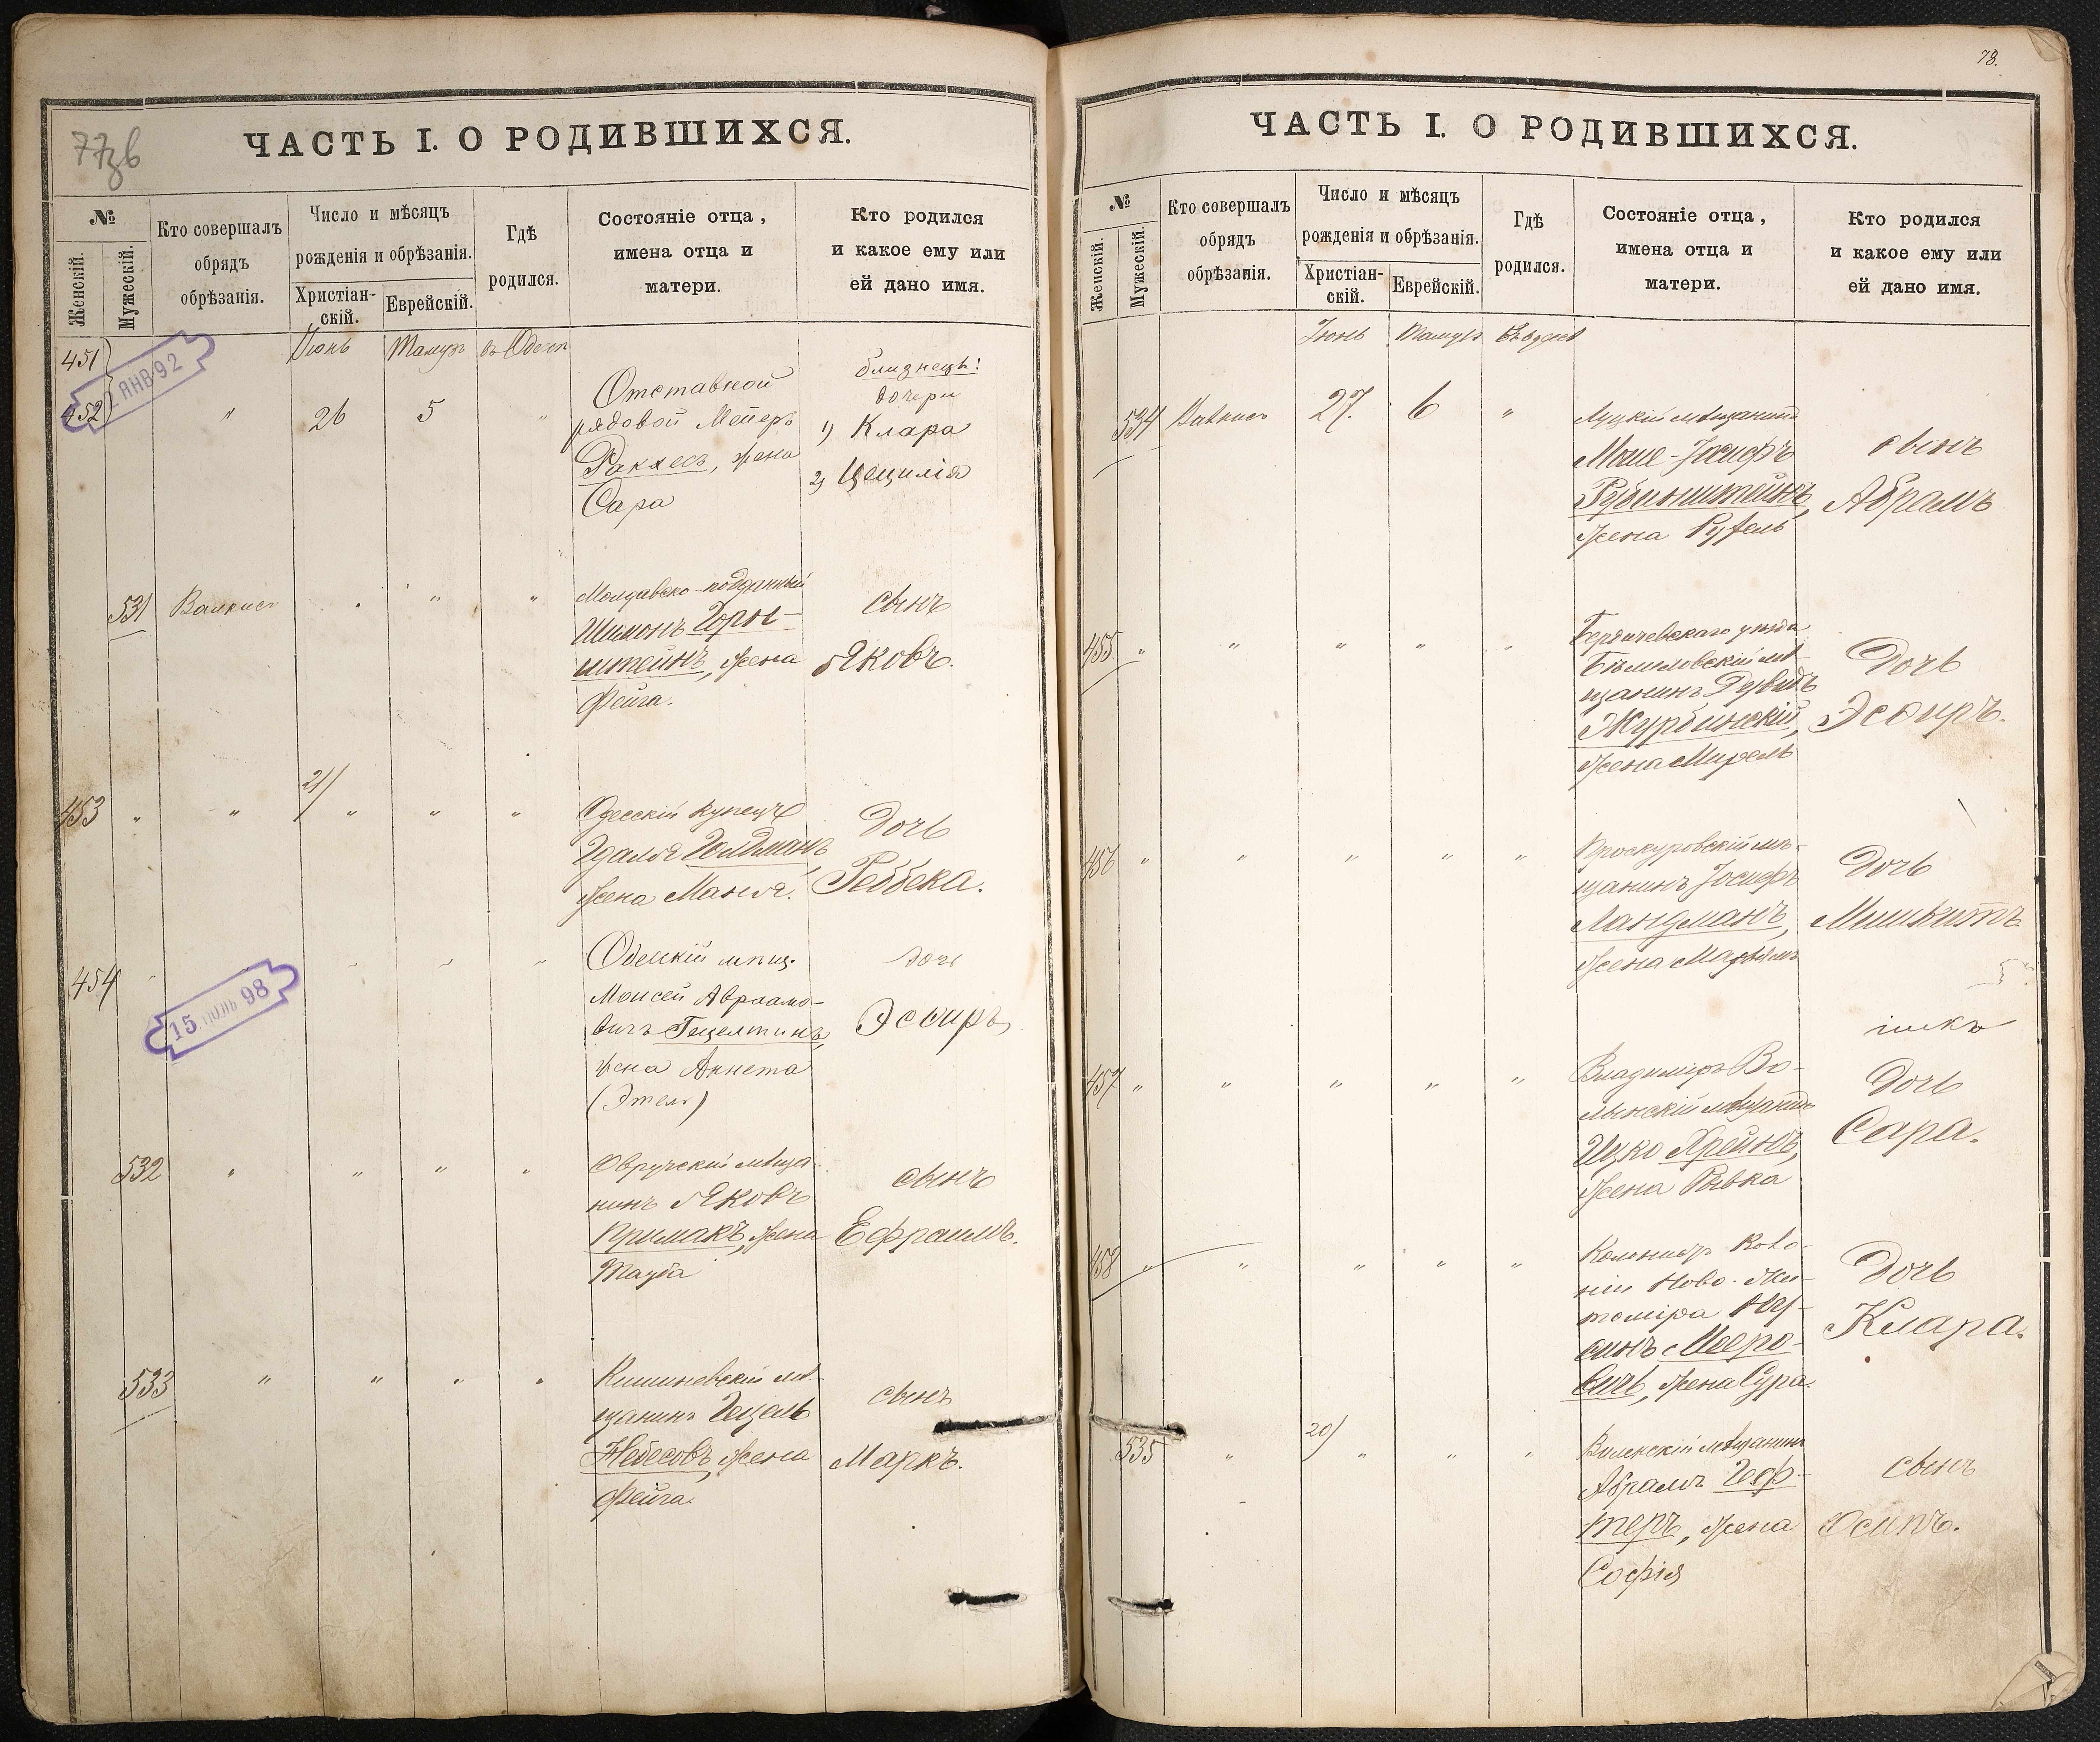 77зв
ЧАСТЬ I. О РОДИВШИХСЯ.
№
Женскій.
Мужескій.
Кто совершалъ
обрядъ
обрѣзанія.
Число и мѣсяцъ
рожденія и обрѣзанія.
Христіан-
скій.
Еврейскій.
Гдѣ
родился.
Состояніе отца,
имена отца и
матери.
Кто родился
и какое ему или
ей дано имя.
Июнь Тамузъ въ Одессе
451
452
ЯНВ 92
" 26 5 "
Отставной
рядовой Мейеръ
Рахлесъ, жена
Сара
близнецы:
дочери
1) Клара
2) Цецилія
531 " "
Молдавско-подданный
Шимонъ Горн-
штейнъ, жена
Фейга.
сынъ
Яковъ.
453 " " 21) " " "
Одесскій купецъ
Гдалья Гольдманъ,
жена Маня.
Дочь
Реббека.
454
15 98
Одесскій мѣщ.
Моисей Авраамо-
вичъ
жена Аннета
(Этель)
дочь
Эсѳирь
532 " " " "
Овручскій мѣща-
нинъ Яковъ
Примакъ, жена
Тауба
сынъ
Ефраимъ.
533 " " " "
Кишиневскій мѣ-
щанинъ Гецель
Небесовъ, жена
Фейга.
сынъ
Маркъ.
78.
ЧАСТЬ I. О РОДИВШИХСЯ.
№
Женскій.
Мужескій.
Кто совершалъ
обрядъ
обрѣзанія.
Число и мѣсяцъ
рожденія и обрѣзанія.
Христіан-
скій.
Еврейскій.
Гдѣ
родился.
Состояніе отца,
имена отца и
матери.
Кто родился
и какое ему или
ей дано имя.
Іюнь Тамузъ
534 27. 6 "
Луцкій мѣщанинъ
Моше-Іосифъ
Рубинштейнъ,
жена
сынъ
Абрамъ
455. " " " " "
Бердичевскаго уѣзда
мѣ-
щанинъ Дувидъ
Журбинскій,
жена Мирель
Дочь
Эсѳирь.
456 " " " " "
Проскуровскій мѣ-
щанинъ Іосифъ
Ландманъ,
жена
Дочь
457 " " " " "
Владиміръ Во-
лынскій мѣщанинъ
Ицко Крейнъ,
жена Рывка
Дочь
Сара.
458 " " " " "
Колонистъ коло-
ніи Ново-Жи-
томіра Ну-
синъ Мееро-
вичъ, жена Сура.
Дочь
Клара.
535 " 20) " " "
Виленскій мѣщанинъ
Абрамъ Геф-
теръ, жена
Софія
сынъ
Осипъ.